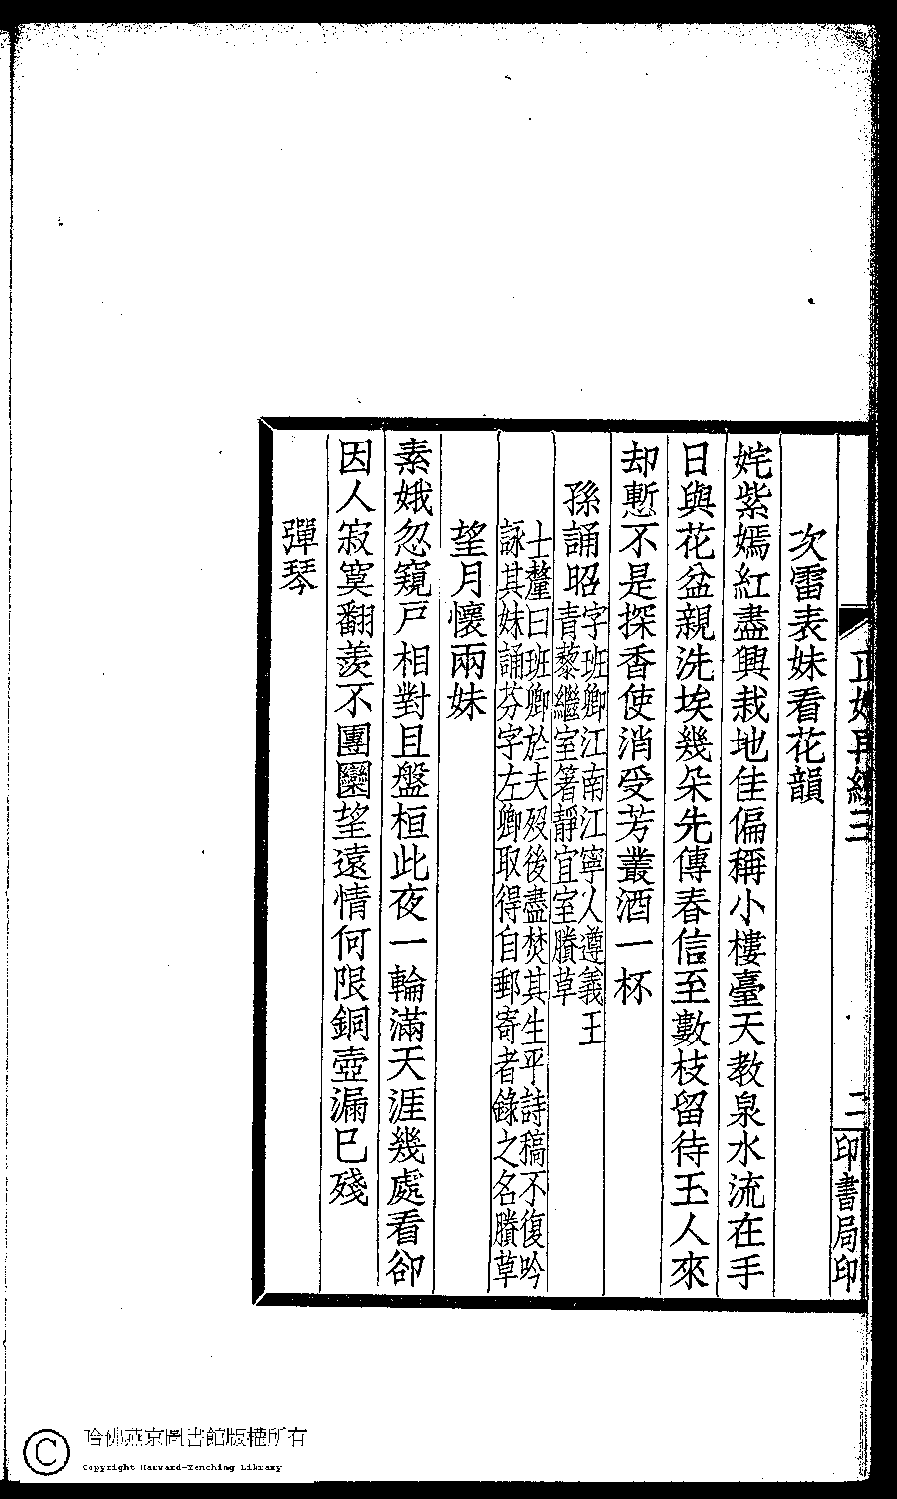 次雷表妹看花韻
姹紫嫣紅盡興栽地佳偏稱小樓臺天教泉水流在手
日與花盆親洗埃幾朵先傳春信至數枝留待玉人來
却慙不是探香使消受芳叢酒一杯
孫誦昭字班卿江南江寧人遵義王
青藜繼室箸靜宜室賸草
士釐曰班卿於夫歿後盡焚其生平詩稿不復吟
詠其妹誦芬字左卿取得自郵寄者錄之名賸草
望月懷兩妹
素娥忽窺戸相對且盤桓此夜一輪滿天涯幾處看卻
因人寂寞翻羨不團圞望遠情何限銅壺漏已殘
彈琴
正始再續三
二
印書局印
哈佛燕京圖書館版權所有
Copyright Harvard-Yenching Library